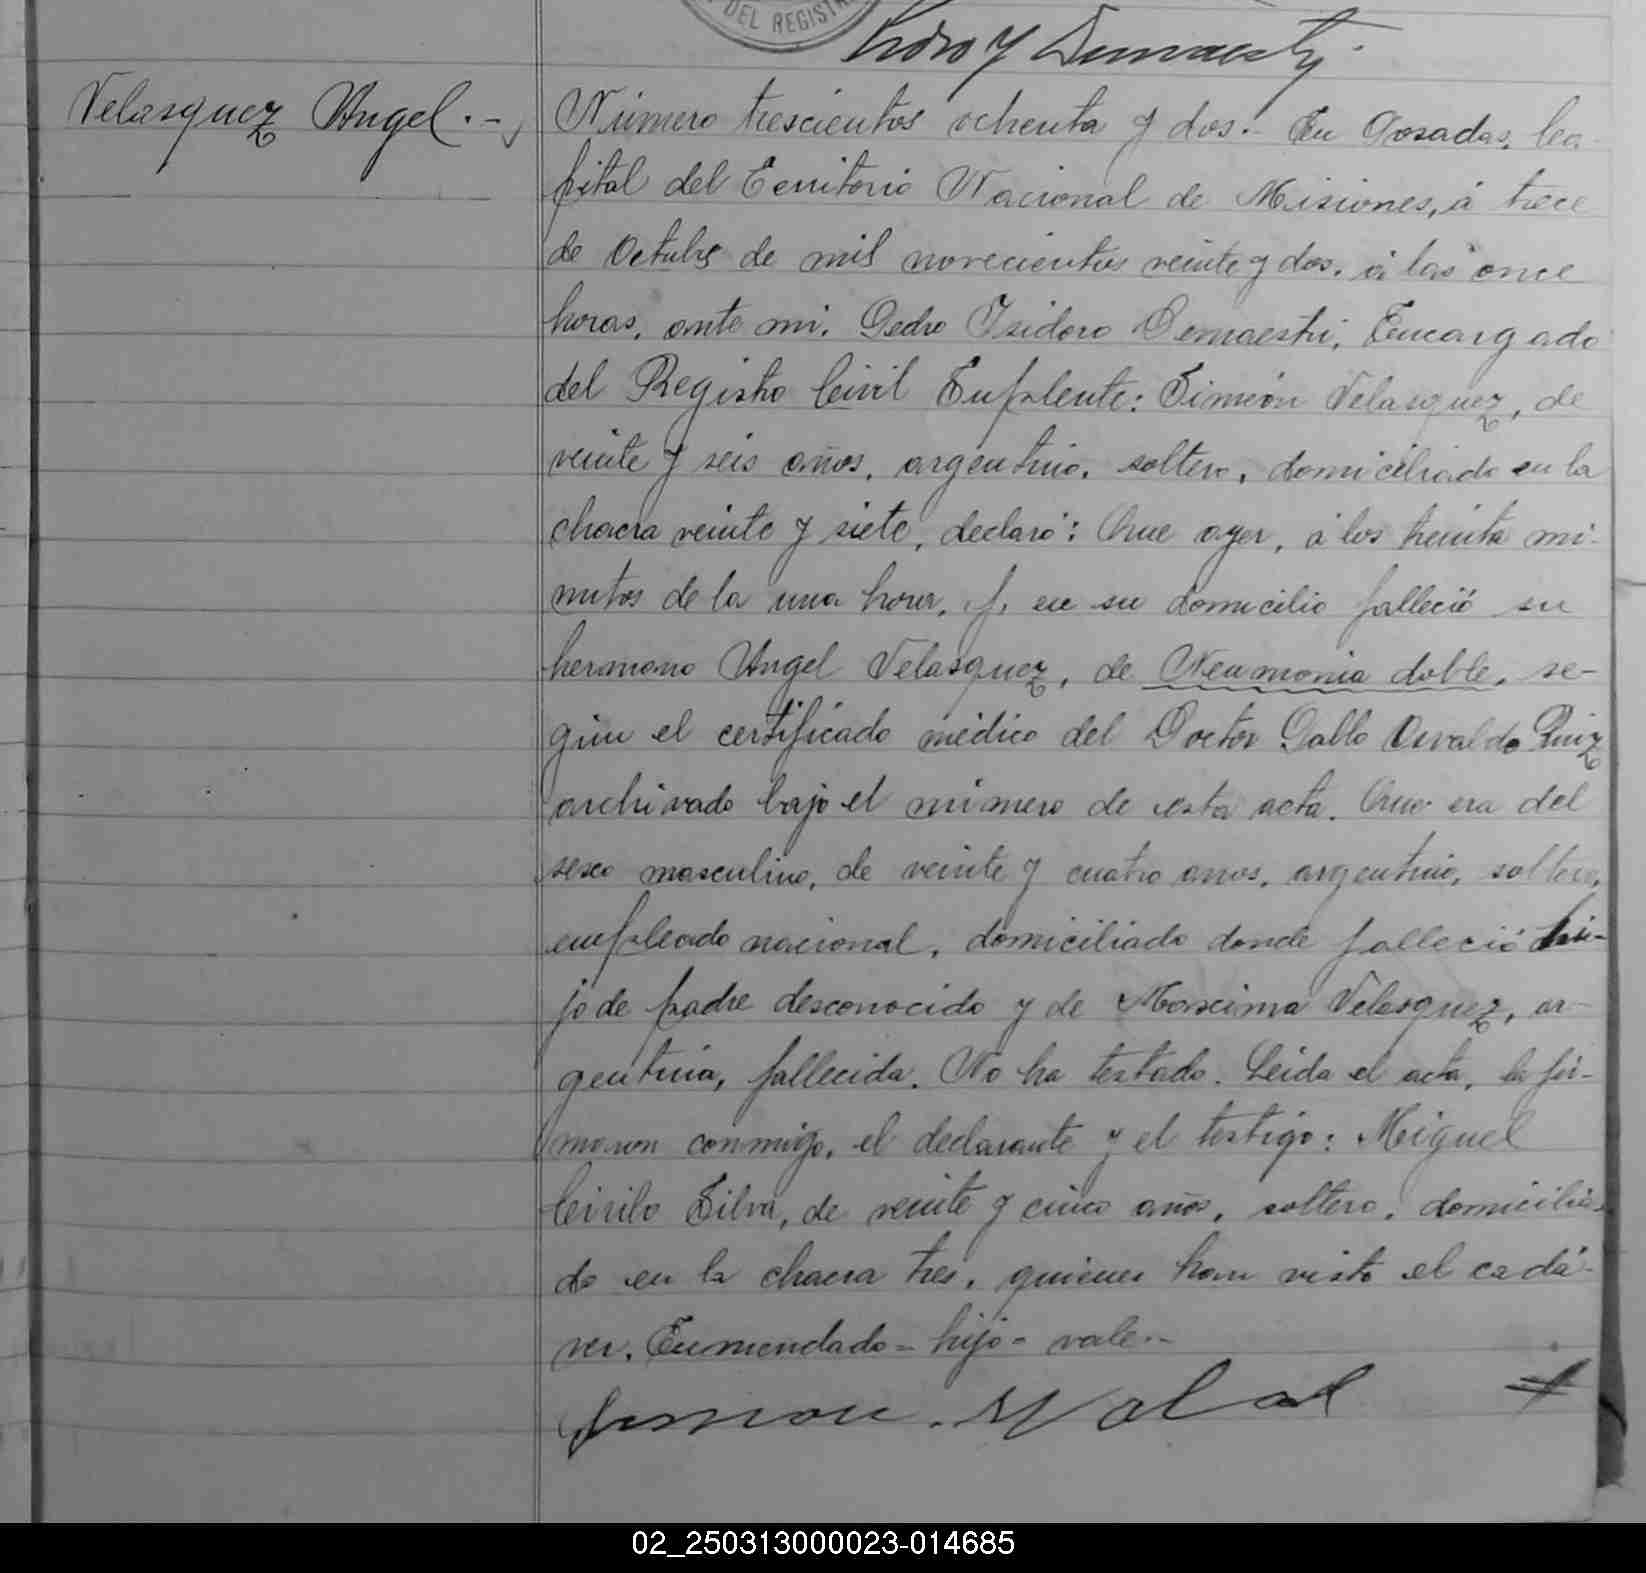 DEL REGISTR
Velasquez Angel.-
Número trescientos ochenta y dos.- En Posadas, Ca-
pital del Territorio Nacional de Misiones, á trece
de Octubre de mil novecientos veinte y dos, á las once
horas, ante mi, Pedro Isidoro Demaestri, Encargado
del Registro Civil Suplente: Simeón Velasquez, de
veinte y seis años, argentino, soltero, domiciliado en la
chacra veinte y siete, declaró: Que ayer, á los treinta mi-
nutos de la una hora, y, en su domicilio falleció su
hermano Angel Velasquez, de Neumonia doble, se-
gún el certificado médico del Doctor Pablo Osvaldo Ruiz
archivado bajo el número de esta acta. Que era del
sexo masculino, de veinte y cuatro años, argentino, soltero,
empleado nacional, domiciliado donde falleció hi-
jo de padre desconocido y de Maxima Velasquez, ar-
gentina, fallecida. No ha testado. Leida el acta, la fir-
maron conmigo, el declarante y el testigo: Miguel
Cirilo Silva, de veinte y cinco años, soltero, domicilia-
do en la chacra tres, quienes han visto el cadá-
ver. Enmendado= hijo= vale.-
02_250313000023-014685